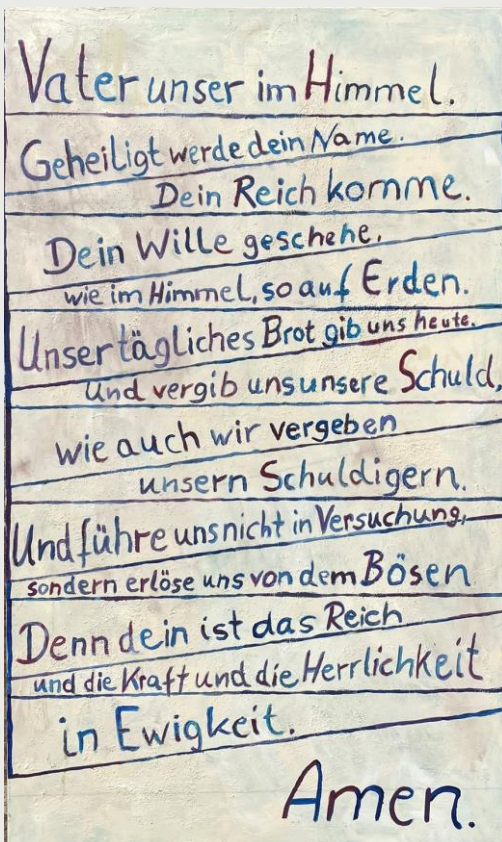 Vater unser im Himmel.
Geheiligt werde dein Name.
Dein Reich komme.
Dein Wille geschehe,
wie im Himmel, so auf Erden.
Unser tägliches Brot gib uns heute.
Und vergib uns unsere Schuld,
wie auch wir vergeben
unsern Schuldigern.
Und führe uns nicht in Versuchung,
sondern erlöse uns von dem Bösen
Denn dein ist das Reich
und die Kraft und die Herrlichkeit
in Ewigkeit.
Amen.